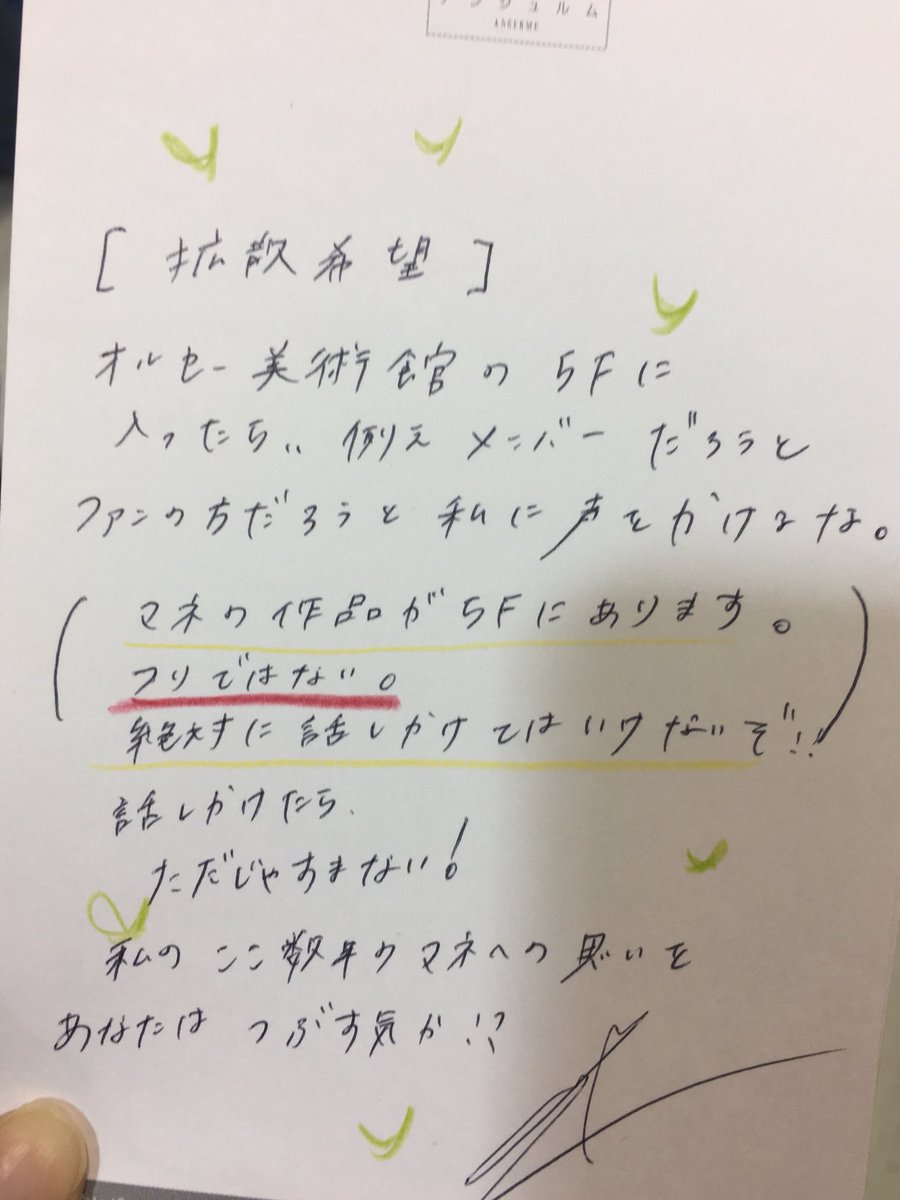 ンジュルム
ANGERME
[拡散希望]
オルセー美術館の5Fに
入ったら、、例え メンバーだろうと
ファンの方だろうと 私に声をかけるな。
(マネの作品が5Fにあります。
フリではない。
絶対に話しかけてはいけないぞ!!)
話しかけたら、
ただじゃすまない!
私のここ数年のマネへの思いを
あなたは つぶす気か!?